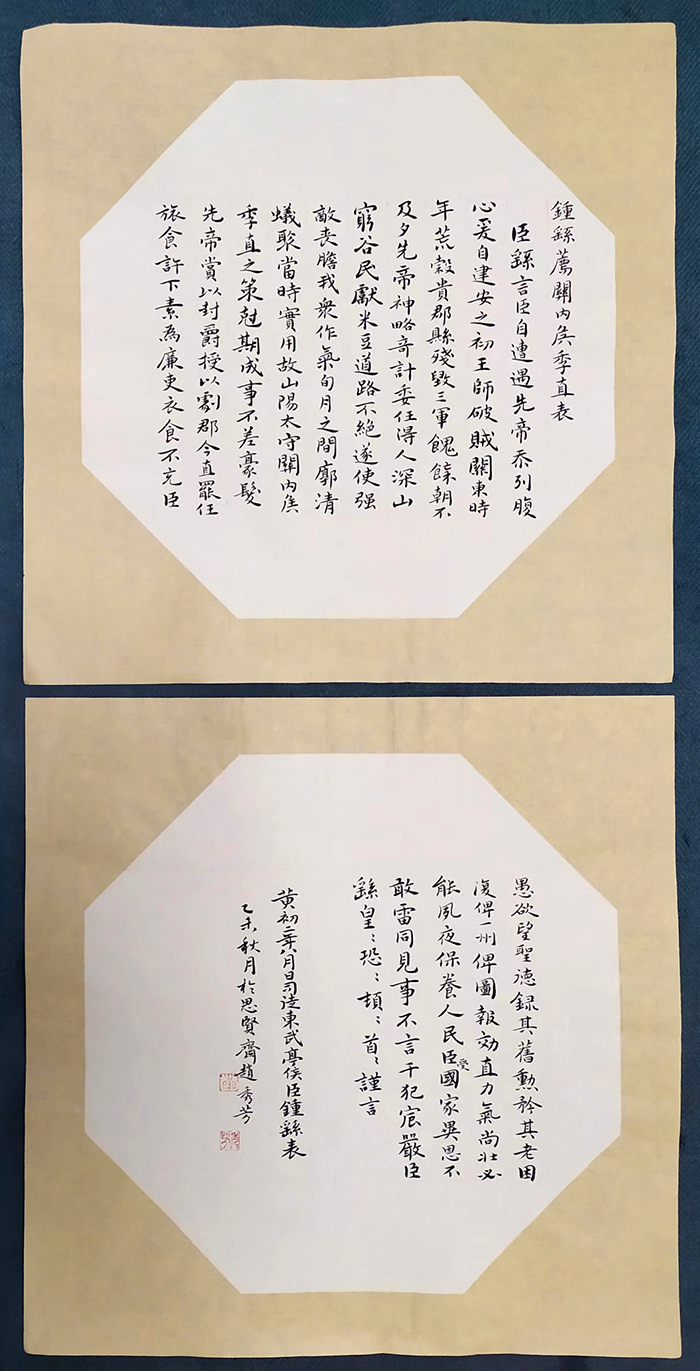 鍾繇薦關內侯季直表
臣繇言臣自遭遇先帝忝列腹
心爰自建安之初王師破賊關東時
年荒穀貴郡縣殘毀三軍餽饟朝不
及夕先帝神略奇計委任得人深山
窮谷民獻米豆道路不絕遂使强
敵喪膽我衆作氣旬月之間廓清
蟻聚當時實用故山陽太守關內侯
季直之策尅期成事不差豪髮
先帝賞以封爵授以劇郡今直罷任
旅食許下素為廉吏衣食不充臣
愚欲望聖德録其舊勲矜其老困
復俾一州俾圖報効直力氣尚壯必
能夙夜保養人民臣受國家異恩不
敢雷同見事不言干犯宸嚴臣
繇皇：恐：頓：首：謹言
黃初二年八月日司徒東武亭侯臣鍾繇表
乙未秋月於思賢齋趙秀芳